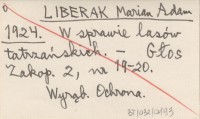 LIBERAK Marian Adam
1924. W sprawie lasów
tatrzańskich. – Głos
Zakop. 2, nr 19-20.
Wyrąb. Ochrona.